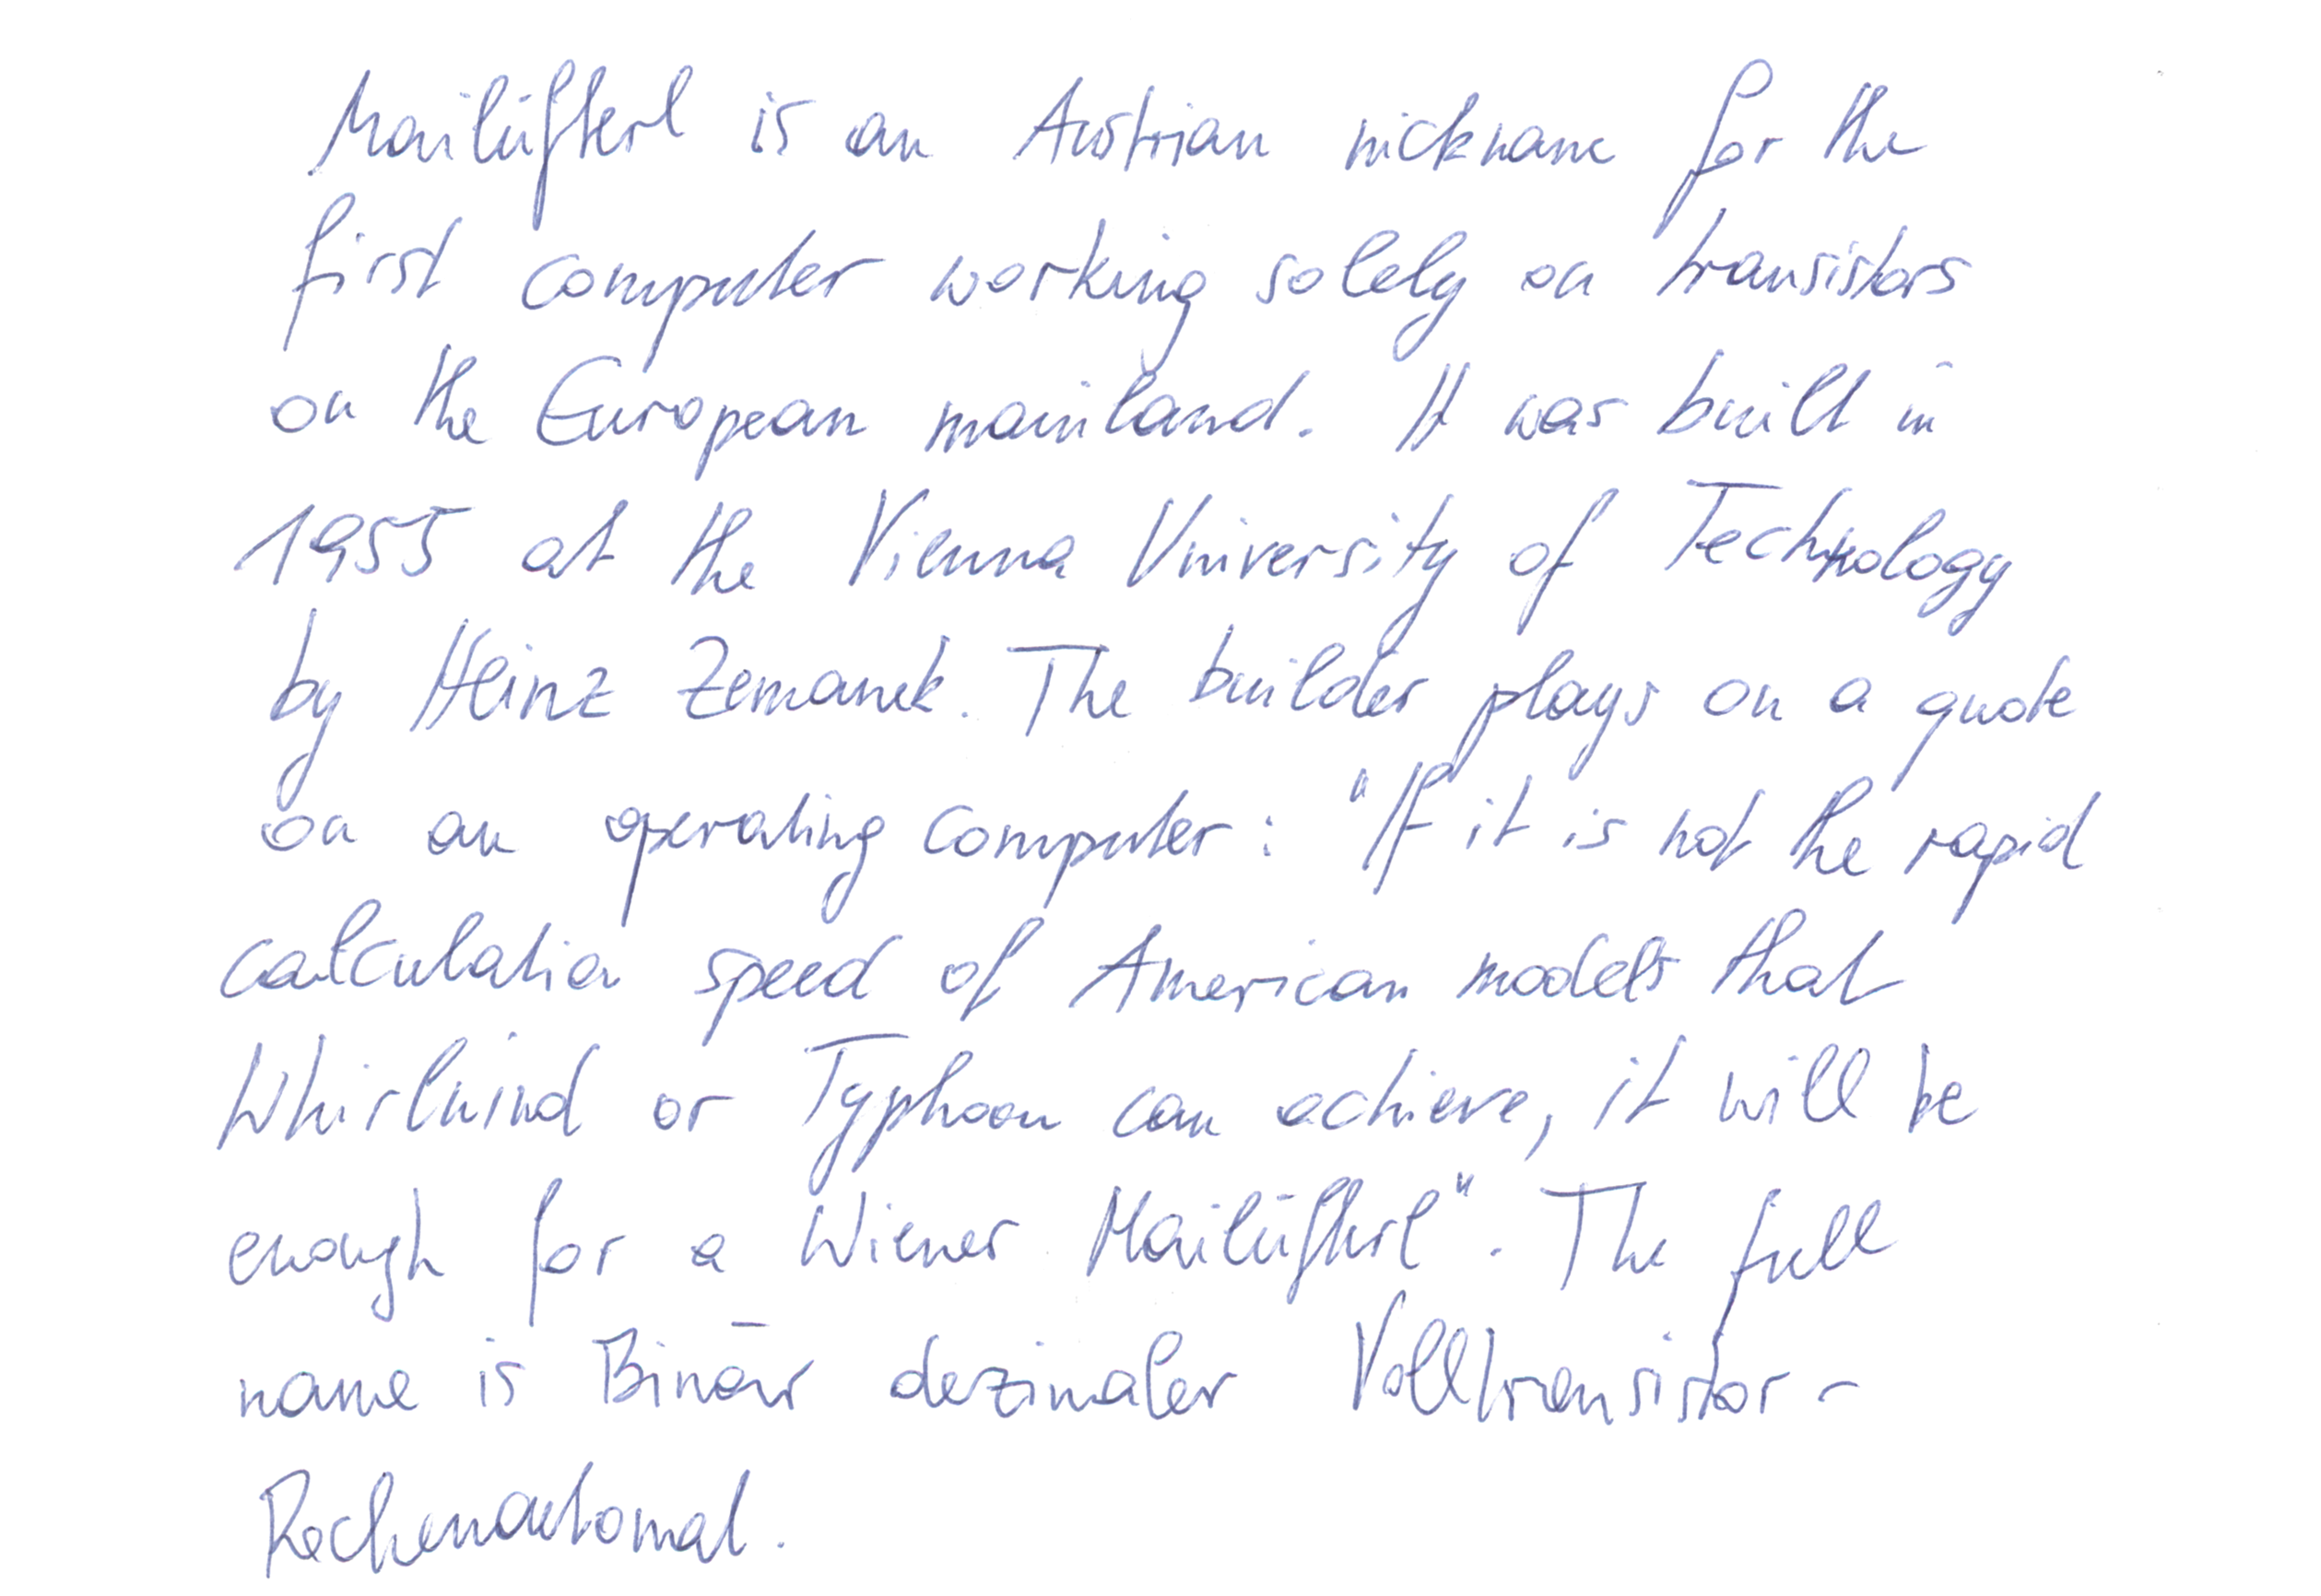 Mailüfterl is an Austrian nickname for the
first computer working solely on transistors
on the European mainland. It was built in
1955 at the Vienna University of Technology
by Heinz Zemanek. The builder plays on a quote
on an operating computer: "If it is not the rapid
calculation speed of American models that
Whirlwind or Typhoon can achieve, it will be
enough for a Wiener Mailüfterl". The full
name is Binär dezimaler Volltransistor-
Rechenautomat.